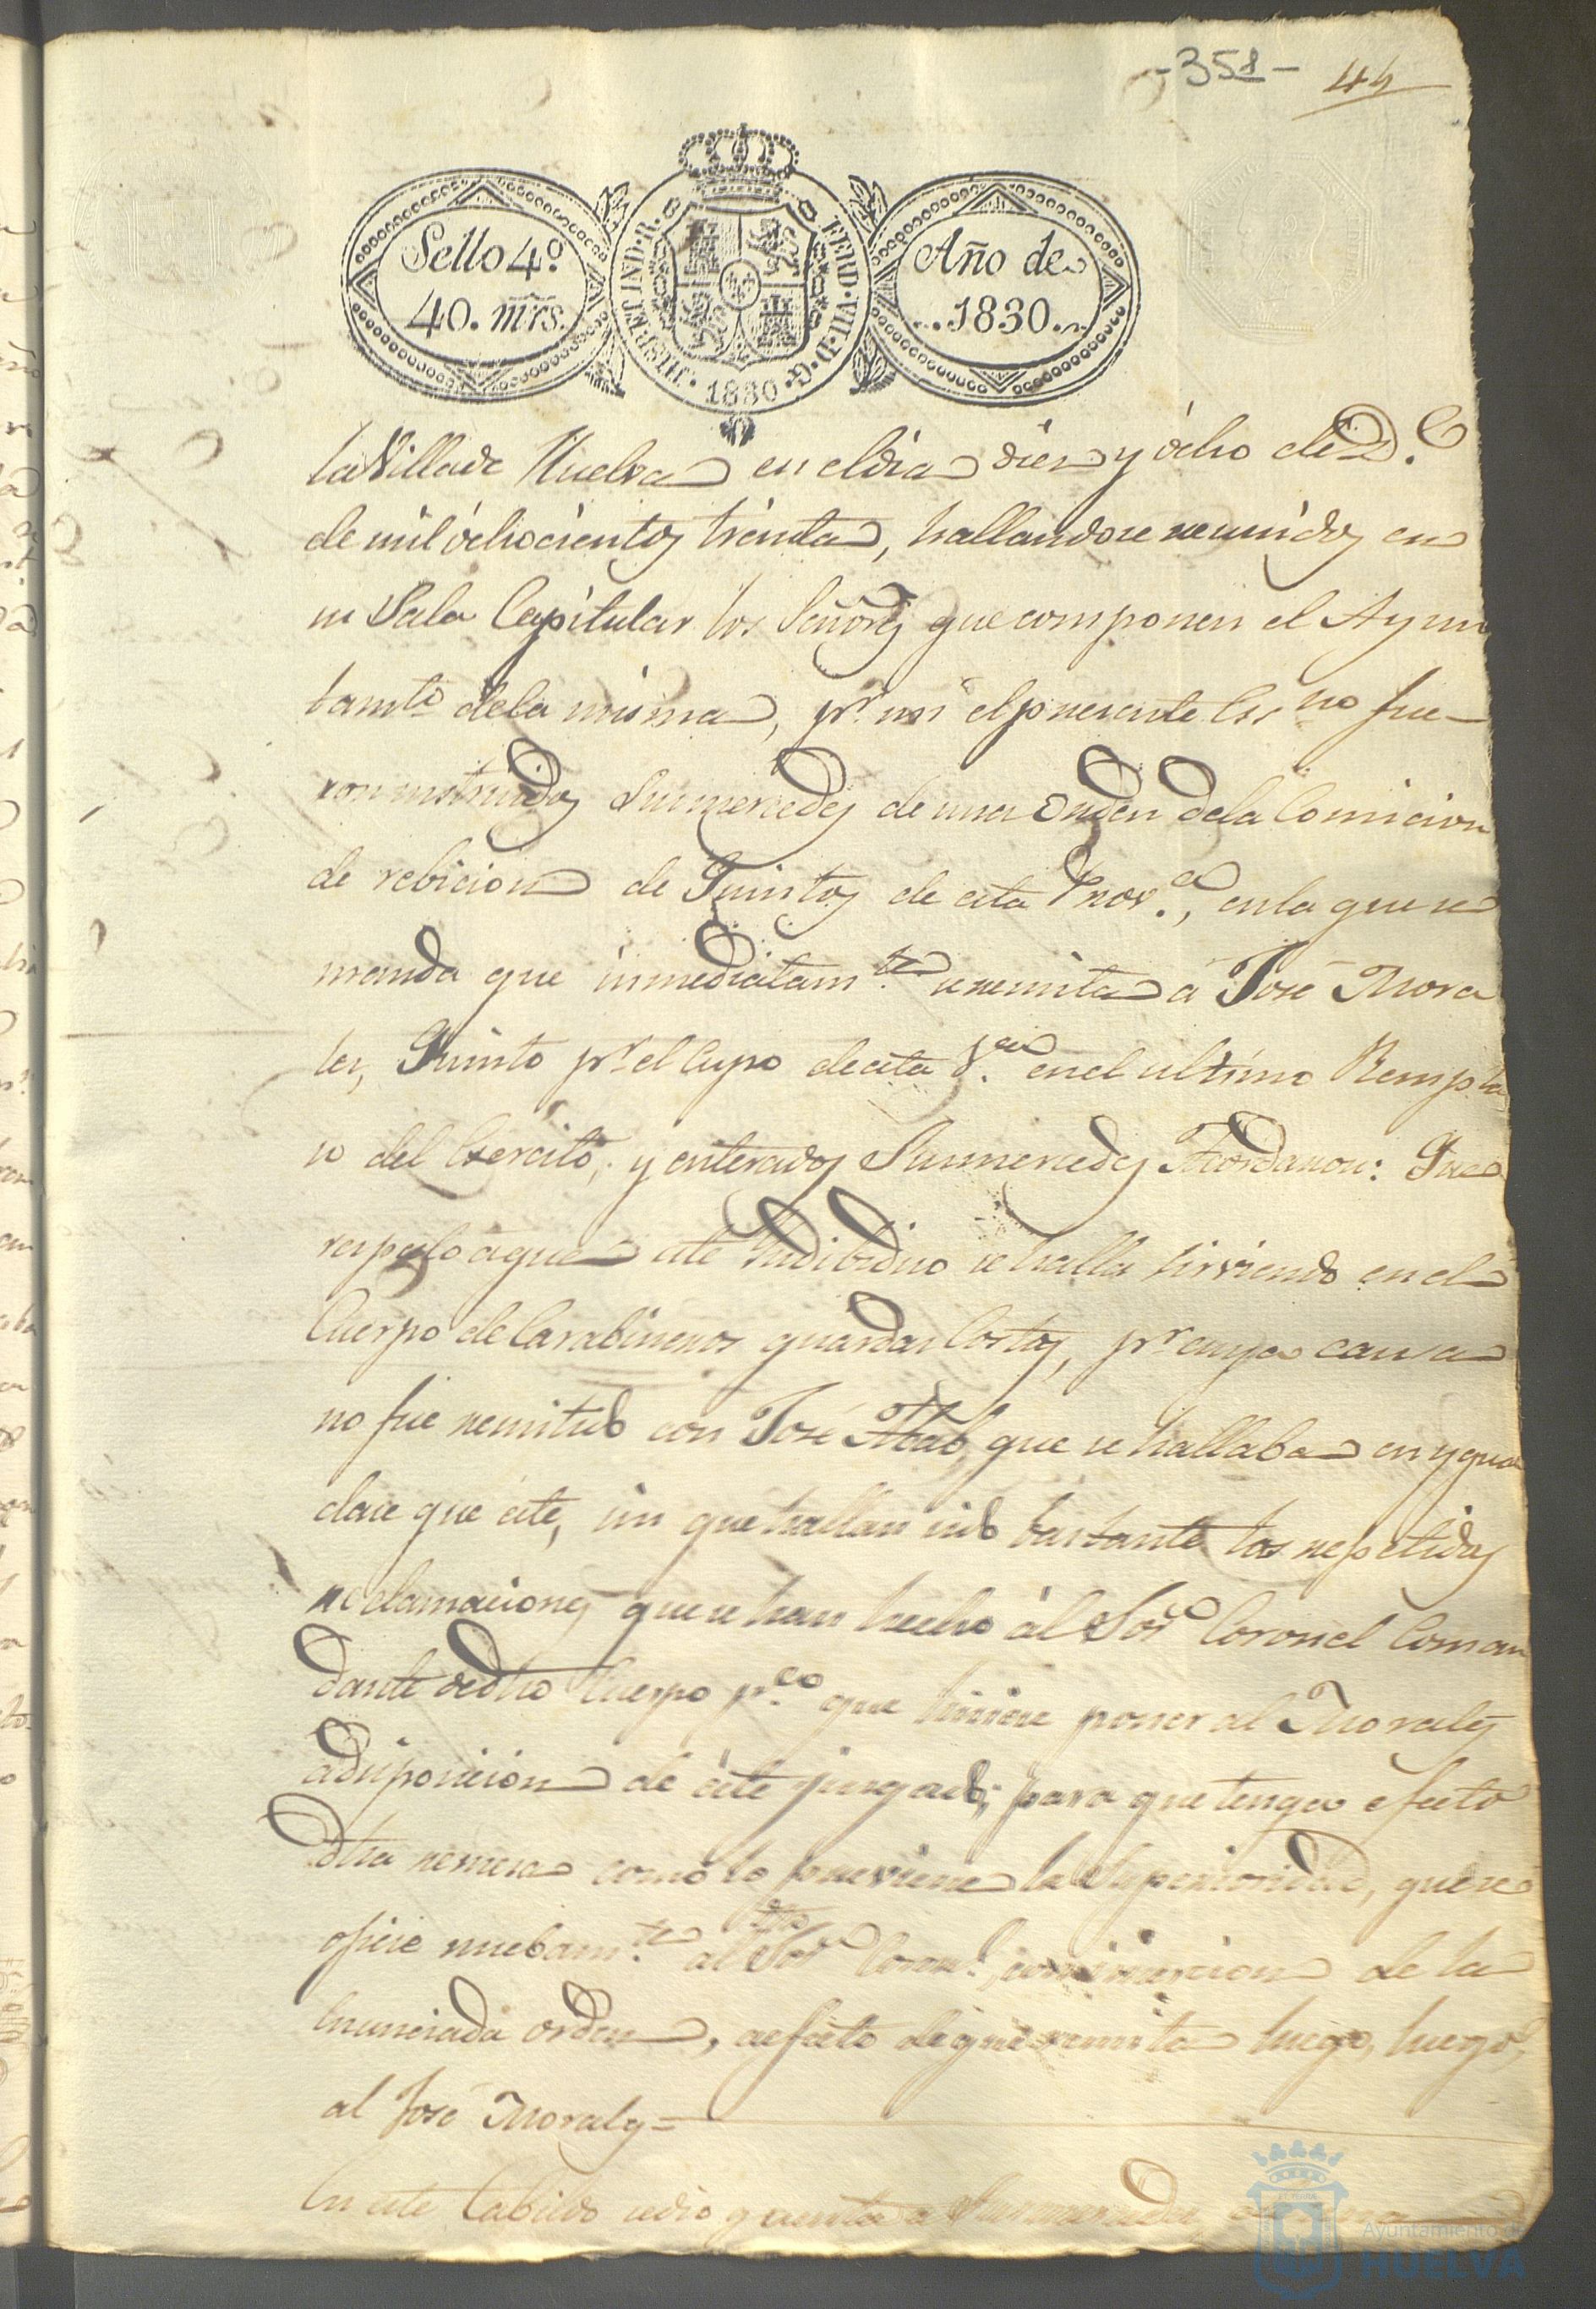 -358- 44
Sello 4º. Año de
40. mrs. .. 1830.
HISP. ET IND. R. FERD. VII. D. G. 1830
la Villa de Huelva en el dia diez y ócho de D.e
de mil óchocientos treinta, hallandose reunidos en
su Sala Capitular los Señores que componen el Ayun
tamto. dela misma, pr. mi el presente Essno fue-
ron instruidos Sus mercedes de una Orden dela Comicion
de rebicion de Quintos de esta Prova., en la que se
manda que inmediatamte. se remita á José Mora
les, Quinto pr. el Cupo de esta Va. en el ultimo Rempla
so del Exercito, y enterados Sus mercedes Acordaron: Que
respecto a que este Indibiduo se halla sirviendo en el
Cuerpo de Carabineros guarda Costas, pr cuya causa
no fue remitido con José Abad, que se hallaba en ygual
clase que éste, sin que hallan sido bastante las repetidas
reclamaciones que se han hecho al Sor Coronel Coman
dante de dho Cuerpo pa. que hiciese poner al Morales
a disposicion de éste juzgado; para que tenga efecto
dha remesa como lo previene la Superioridad, que se
oficie nuebamte. al dho Sor Coronl., con insercion de la
Enunciada orden, aefecto de que remita luego, luego,
al José Morales=
En este Cabildo se dio quenta a Sus mercedes
Ayuntamiento de
HUELVA